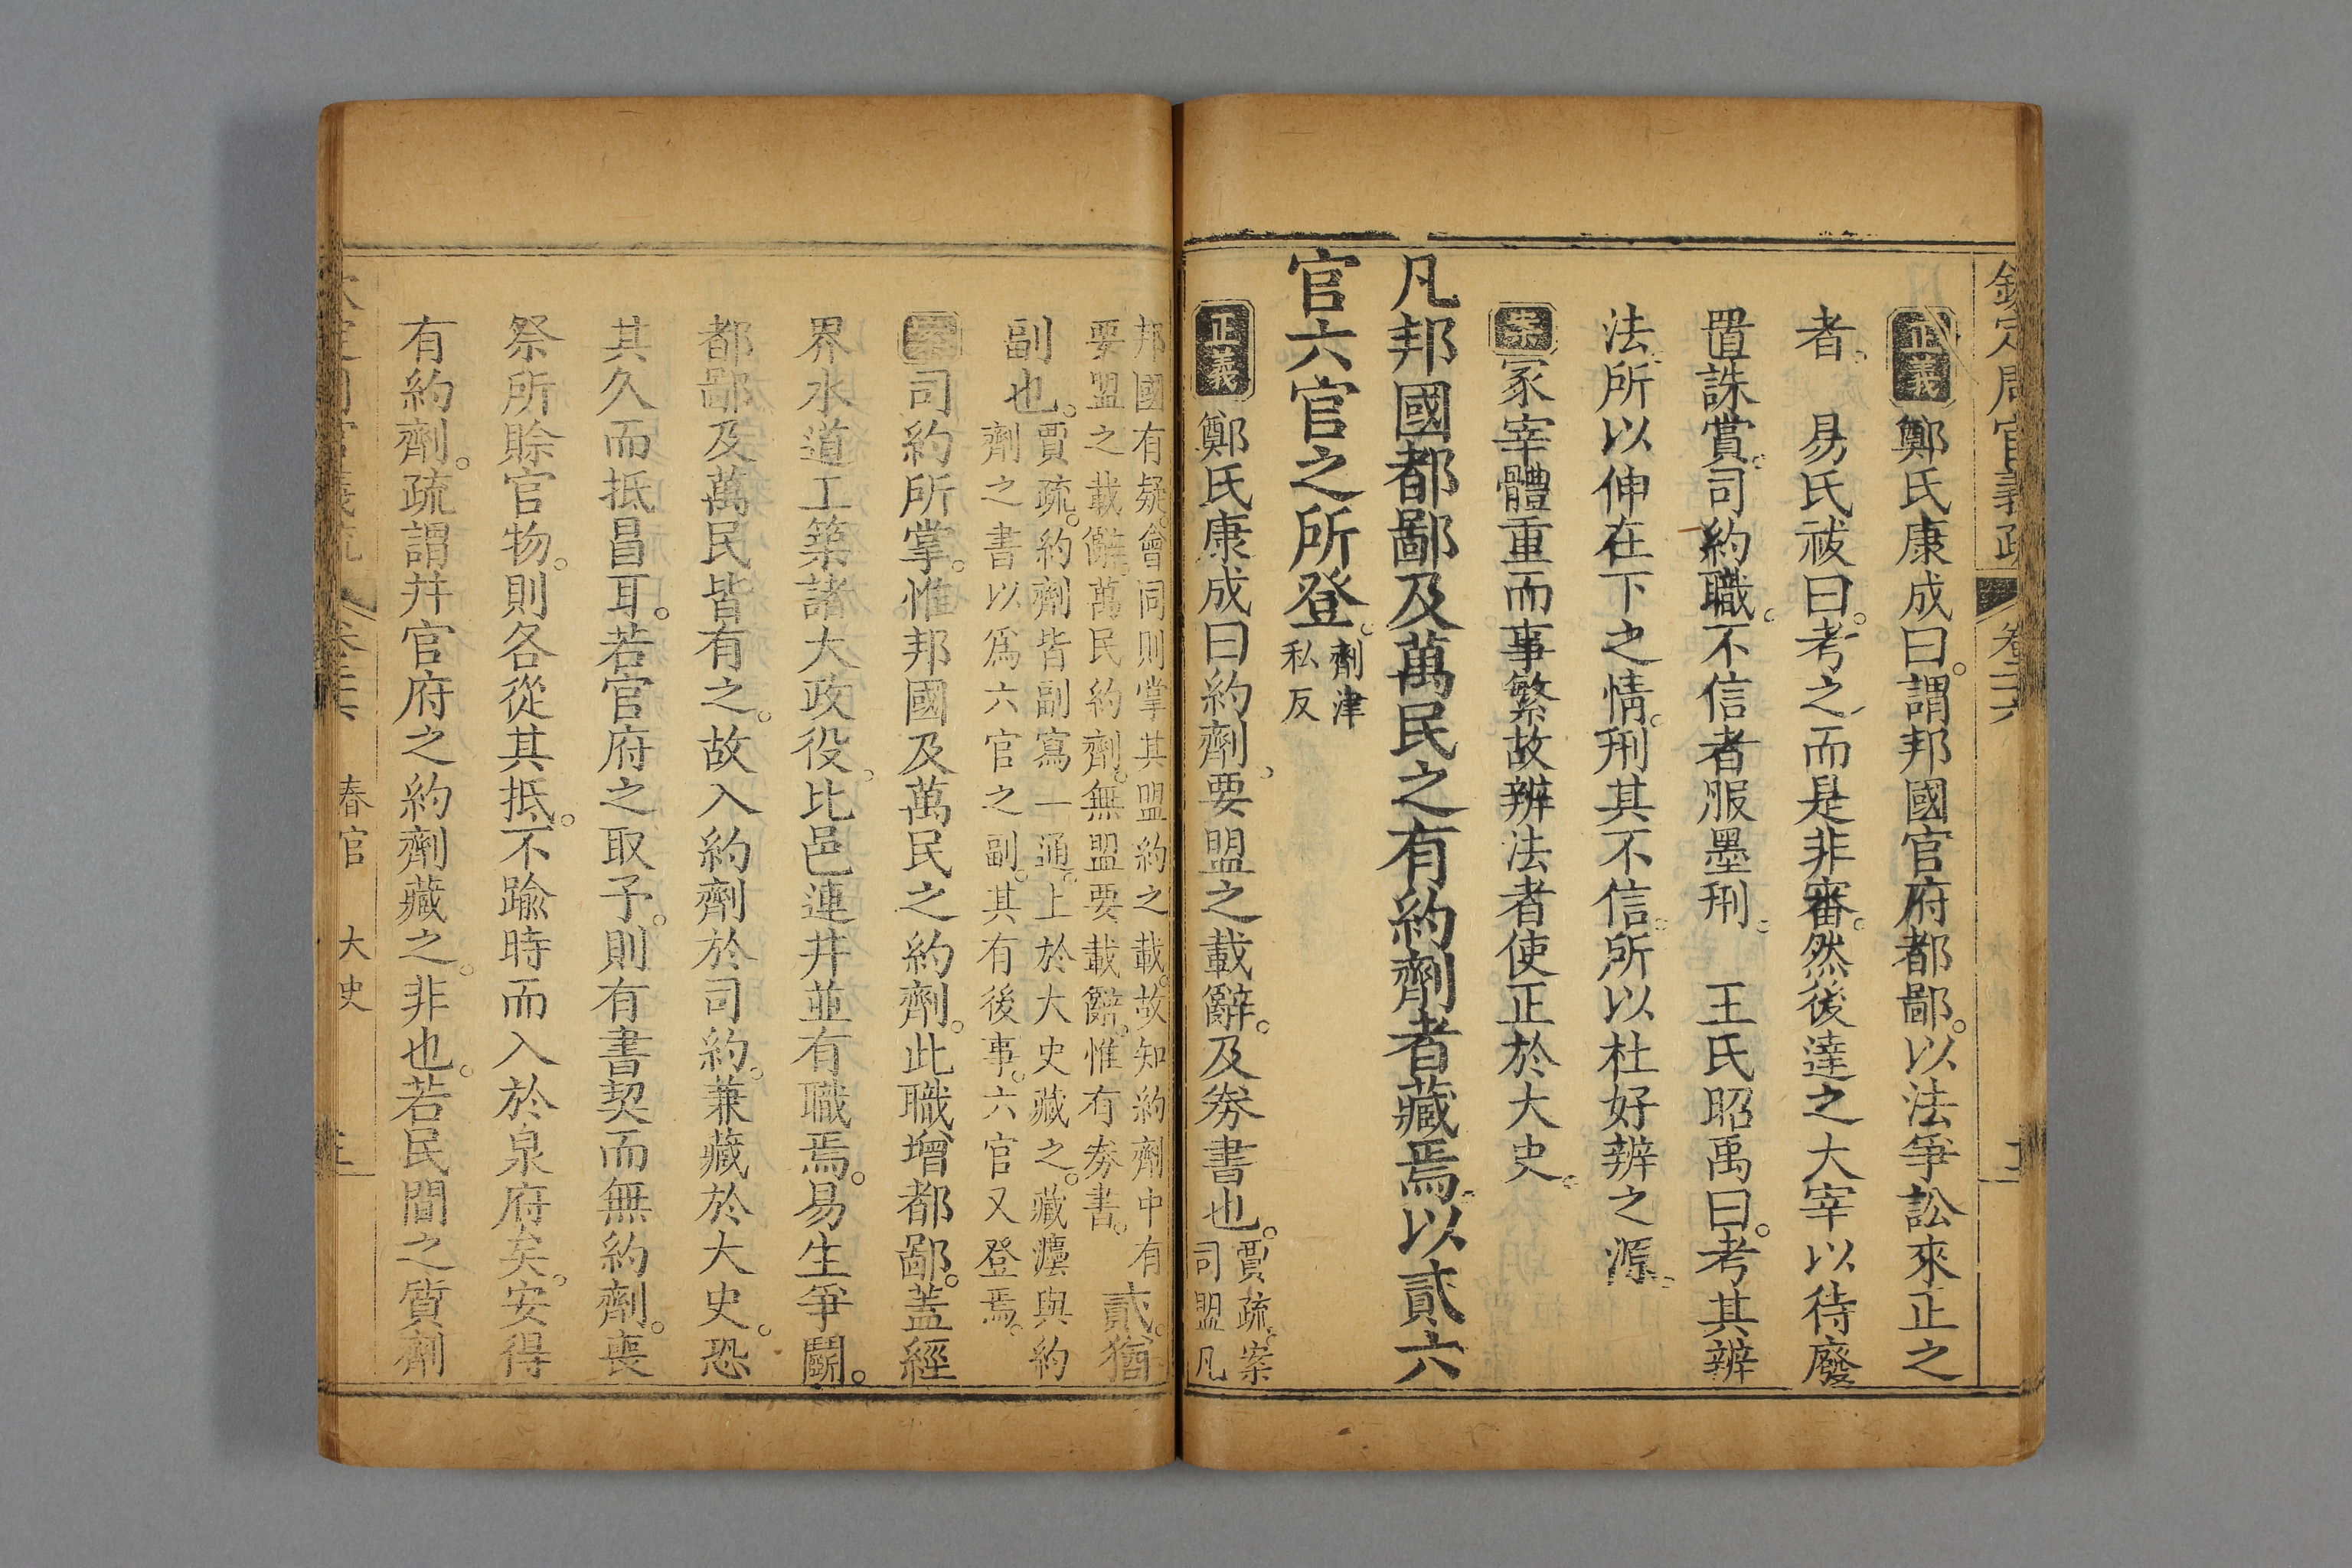 欽定周官義疏 卷二六
正義鄭氏康成曰。謂邦國官府都鄙。以法爭訟來正之
者。 易氏祓曰。考之而是非審。然後達之大宰以待廢
置誅賞。司約職。不信者服墨刑。 王氏昭禹曰。考其辨
法。所以伸在下之情。刑其不信。所以杜好辨之源。
案冢宰體重而事繁故辨法者使正於大史。
凡邦國都鄙及萬民之有約劑者藏焉。以貳六
官六官之所登。劑津
私反
正義鄭氏康成曰約劑。要盟之載辭。及劵書也。賈疏。案
司盟凡
邦國有疑。會同則掌其盟約之載。故知約劑中有
要盟之載辭。萬民約劑。無盟要載辭。惟有劵書。貳。猶
副也。賈疏。約劑皆副寫一通。上於大史藏之。藏灋與約
劑之書以爲六官之副。其有後事。六官又登焉。
案司約所掌。惟邦國及萬民之約劑。此職增都鄙。蓋經
界水道工築諸大政役。比邑連井並有職焉。易生爭鬭。
都鄙及萬民皆有之。故入約劑於司約。兼藏於大史。恐
其久而抵冒耳。若官府之取予。則有書契而無約劑。喪
祭所賒官物。則各從其抵。不踰時而入於泉府矣。安得
有約劑。疏謂幷官府之約劑藏之。非也。若民間之質劑
春官 大史